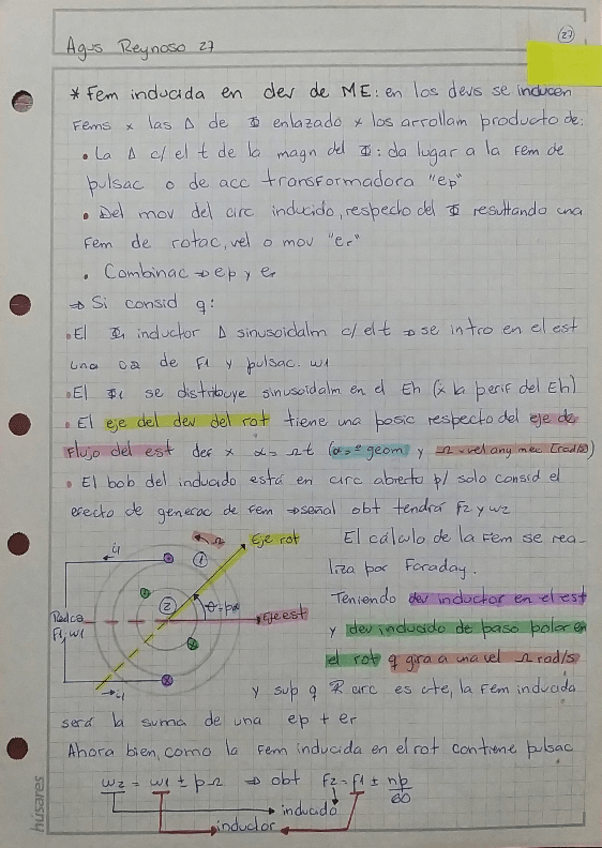 Agus Reynoso 27
27
* Fem inducida en dev de ME: en los devs se inducen
Fems x las Δ de Φ enlazado x los arrollam producto de:
• La Δ c/ el t de la magn del Φ: da lugar a la Fem de
pulsac o de acc transformadora "ep"
• Del mov del circ inducido, respecto del Φ resultando una
Fem de rotac, vel o mov "er"
• Combinac ⇒ ep y er
⇒ Si consid q:
• El Φ1 inductor Δ sinusoidalm c/ el t ⇒ se intro en el est
una ca de F1 y pulsac. w1
• El Φ1 se distribuye sinusoidalm en el Eh (x la perif del Eh)
• El eje del dev del rot tiene una posic respecto del eje de
Flujo del est def x α = Ωt (α = ° geom y Ω = vel ang mec [rad/s])
• El bob del inducido está en circ abierto p/ solo consid el
efecto de generac de Fem ⇒ señal obt tendrá F2 y w2
i1
Ω
Eje rot
1
2
θ = pα
Red ca
F1, w1
Eje est
i1
El cálculo de la Fem se rea-
liza por Faraday.
Teniendo dev inductor en el est
y dev inducido de paso polar en
el rot q gira a una vel Ω rad/s
y sup q R arc es cte, la Fem inducida
será la suma de una ep + er
Ahora bien, como la Fem inducida en el rot contiene pulsac
w2 = w1 ± pΩ ⇒ obt F2 = F1 ± np/60
inducido
inductor
husares